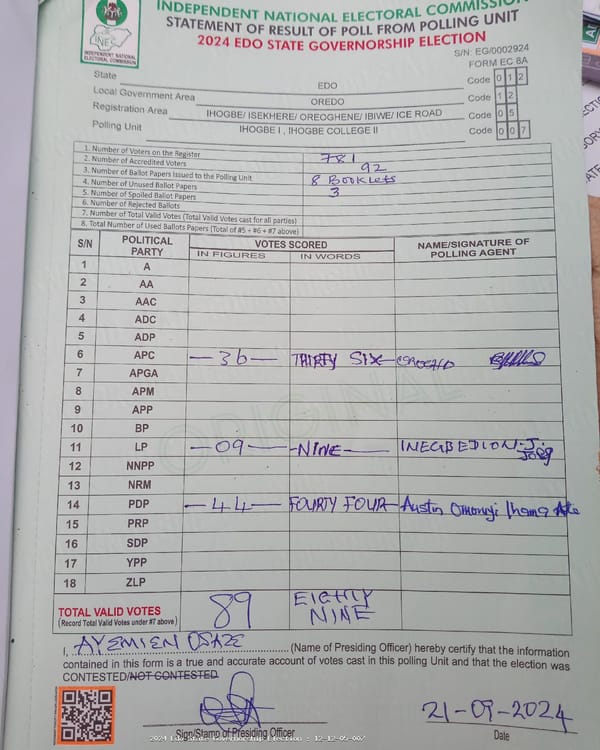 INDEPENDENT NATIONAL ELECTORAL COMMISSION
STATEMENT OF RESULT OF POLL FROM POLLING UNIT
2024 EDO STATE GOVERNORSHIP ELECTION
INEC
INDEPENDENT NATIONAL
ELECTORAL COMMISSION
S/N: EG/0002924
FORM EC 8A
State EDO Code 0 1 2
Local Government Area OREDO Code 1 2
Registration Area IHOGBE/ ISEKHERE/ OREOGHENE/ IBIWE/ ICE ROAD Code 0 5
Polling Unit IHOGBE I , IHOGBE COLLEGE II Code 0 0 7
1. Number of Voters on the Register 781
2. Number of Accredited Voters 92
3. Number of Ballot Papers Issued to the Polling Unit 8 Booklets
4. Number of Unused Ballot Papers
5. Number of Spoiled Ballot Papers 3
6. Number of Rejected Ballots
7. Number of Total Valid Votes (Total Valid Votes cast for all parties)
8. Total Number of Used Ballots Papers (Total of #5 + #6 + #7 above)
S/N POLITICAL PARTY VOTES SCORED NAME/SIGNATURE OF POLLING AGENT
IN FIGURES IN WORDS
1 A
2 AA
3 AAC
4 ADC
5 ADP
6 APC —36— THIRTY SIX
7 APGA
8 APM
9 APP
10 BP
11 LP —09— —NINE— INEGBEDION. J.
12 NNPP
13 NRM
14 PDP —44— FOURTY FOUR— Austin
15 PRP
16 SDP
17 YPP
18 ZLP
ORIGINAL
TOTAL VALID VOTES 89 EIGHTY NINE
(Record Total Valid Votes under #7 above)
I, AYEMIEN OSAZE (Name of Presiding Officer) hereby certify that the information
contained in this form is a true and accurate account of votes cast in this polling Unit and that the election was
CONTESTED/NOT CONTESTED
21-09-2024
Sign/Stamp of Presiding Officer Date
2024 Edo State Governorship Election : 12-12-05-007